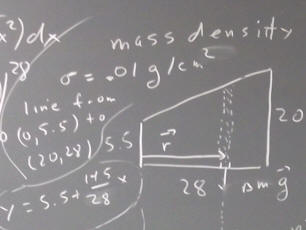 x²)dx
mass density
28
σ = .01 g/cm²
line from
(0,5.5) to
(20,28)
5.5
r⃗
20
28
Δm g⃗
y = 5.5 + 14.5/28 x